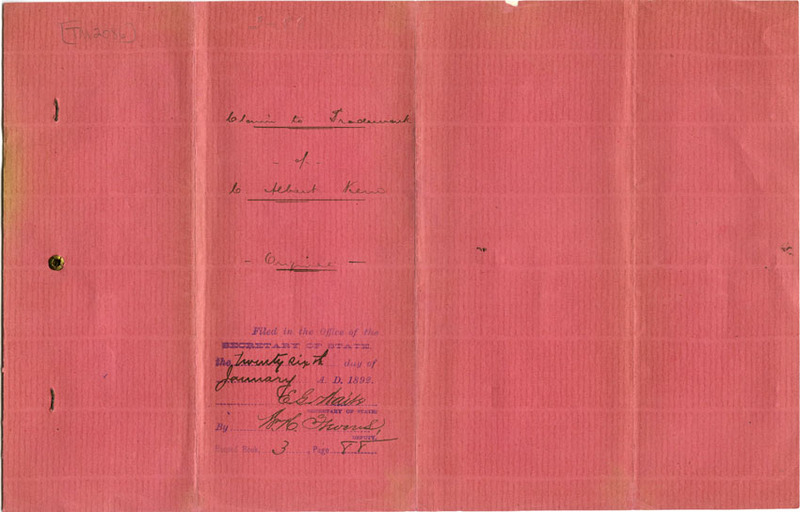 Claim to Trademark
- of -
C Albert
- Original -
Filed in the Office of the
SECRETARY OF STATE
the twenty sixth day of
January A. D. 1892.
E. G. Waite
SECRETARY OF STATE
By
DEPUTY.
Record Book 3, Page 88